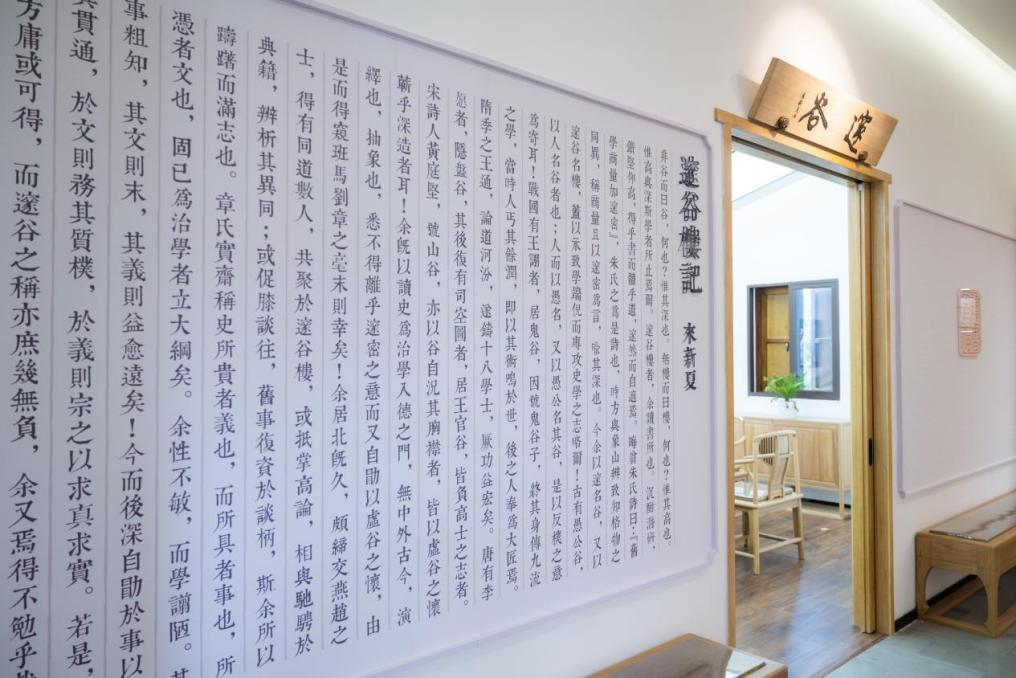 邃谷樓記
來新夏
非谷而曰谷，何也？惟其深也。無樓而曰樓，何也？惟其高也。
惟高與深斯學者所止焉爾。邃谷樓者，余讀書所也。沉酣潛研，
鑽堅仰高，得乎書而體乎道，邃然而自適焉。晦翁朱氏詩曰：『舊
學商量加邃密』，朱氏之爲是詩也，時方與象山辨致知格物之
同異，稱商量且以邃密爲言，喻其深也。今余以邃名谷，又以
邃谷名樓，蓋以示致學端倪而專攻史學之志咯爾！古有愚公谷，
以人名谷者也；人而以愚名，又以愚公名其谷，是以反樸之意
爲寄耳！戰國有王詡者，居鬼谷，因號鬼谷子，終其身傳九流
之學，當時人丐其餘潤，即以其術鳴於世，後之人奉爲大匠焉。
隋季之王通，論道河汾，遂鑄十八學士，厥功益宏矣。唐有李
愿者，隱盤谷，其後復有司空圖者，居王官谷，皆負高士之志者。
宋詩人黃庭堅，號山谷，亦以谷自況其胸襟者，皆以虛谷之懷
蘄乎深造者耳！余既以讀史爲治學入德之門，無中外古今，演
繹也，抽象也，悉不得離乎邃密之意而又自勖以虛谷之懷，由
是而得窺班馬劉章之毫末則幸矣！余居北既久，頗締交燕趙之
士，得有同道數人，共聚於邃谷樓，或抵掌高論，相與馳騁於
典籍，辨析其異同；或促膝談往，舊事復資於談柄，斯余所以
躊躇而滿志也。章氏實齋稱史所貴者義也，而所具者事也，所
憑者文也，固已爲治學者立大綱矣。余性不敏，而學謭陋。其
事粗知，其文則末，其義則益愈遠矣！今而後深自勖於事以
貫通，於文則務其質樸，於義則宗之以求真求實。若是，
方庸或可得，而邃谷之稱亦庶幾無負，余又焉得不勉乎哉
邃谷